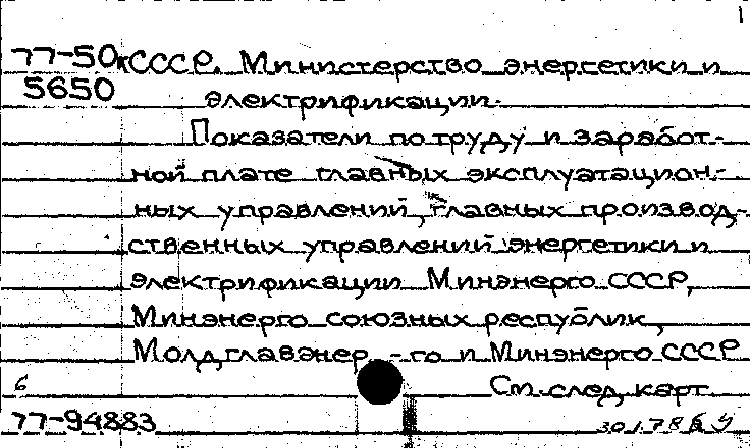 1
77-50к СССР. Министерство энергетики и
5650 электрификации.
Показатели по труду и заработ-
ной плате главных эксплуатацион-
ных управлений, главных производ-
ственных управлений энергетики и
электрификации Минэнерго СССР,
Минэнерго союзных республик,
Молдглавэнер - го и Минэнерго СССР
6 См. след. карт.
77-94883